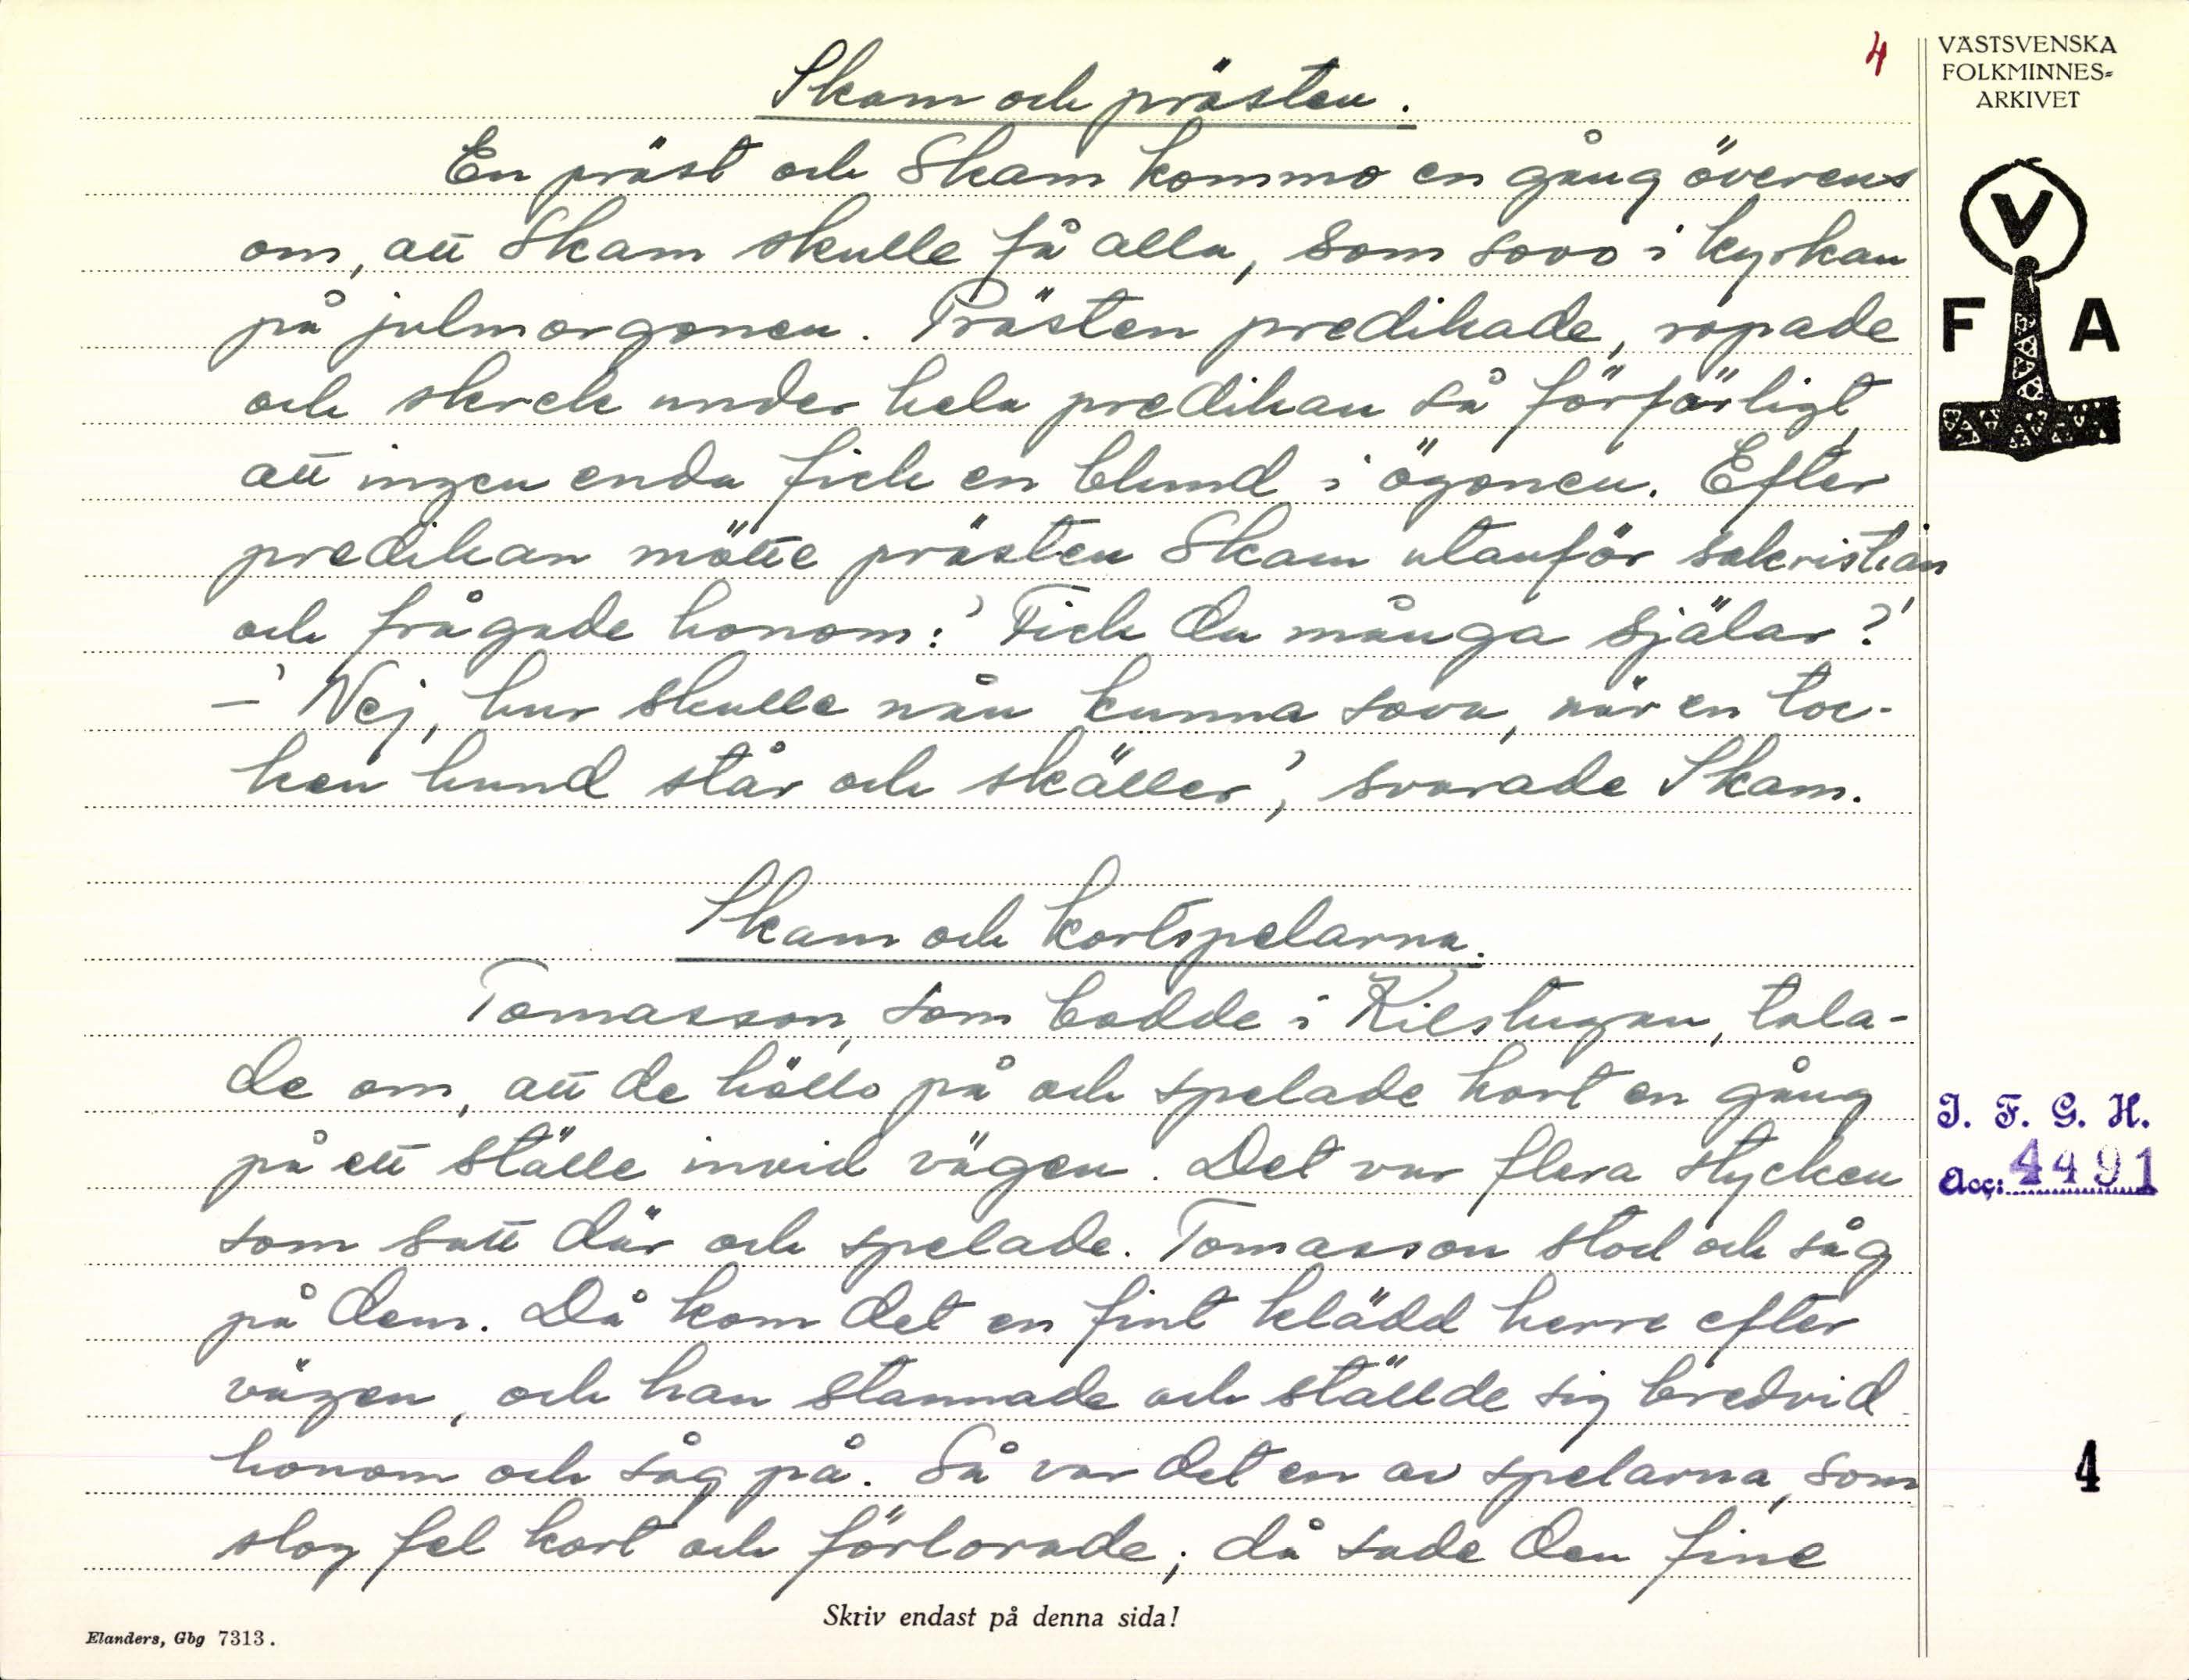 4
VÄSTSVENSKA
FOLKMINNES=
ARKIVET
V
F A
Skam och prästen.
En präst och Skam kommo en gång överens
om, att Skam skulle få alla, som sovo i kyrkan
på julmorgonen. Prästen predikade, ropade
och skrek under hela predikan så förfärligt,
att ingen enda fick en blund i ögonen. Efter
predikan mötte prästen Skam utanför sakristian
och frågade honom: 'Fick du många själar?'
–'Nej, hur skulle nån kunna sova, när en toc-
ken hund står och skäller', svarade Skam.
Skam och kortspelarna.
Tomasson, som bodde i Kilstugan, tala-
de om, att de höllo på och spelade kort en gång
på ett ställe invid vägen. Det var flera stycken
som satt där och spelade. Tomasson stod och såg
på dem. Då kom det en fint klädd herre efter
vägen, och han stannade och ställde sig bredvid
honom och såg på. Så var det en av spelarna, som
slog fel kort och förlorade; då sade den fine
I. F. G. H.
Acc: 4491
4
Skriv endast på denna sida!
Elanders, Gbg 7313.